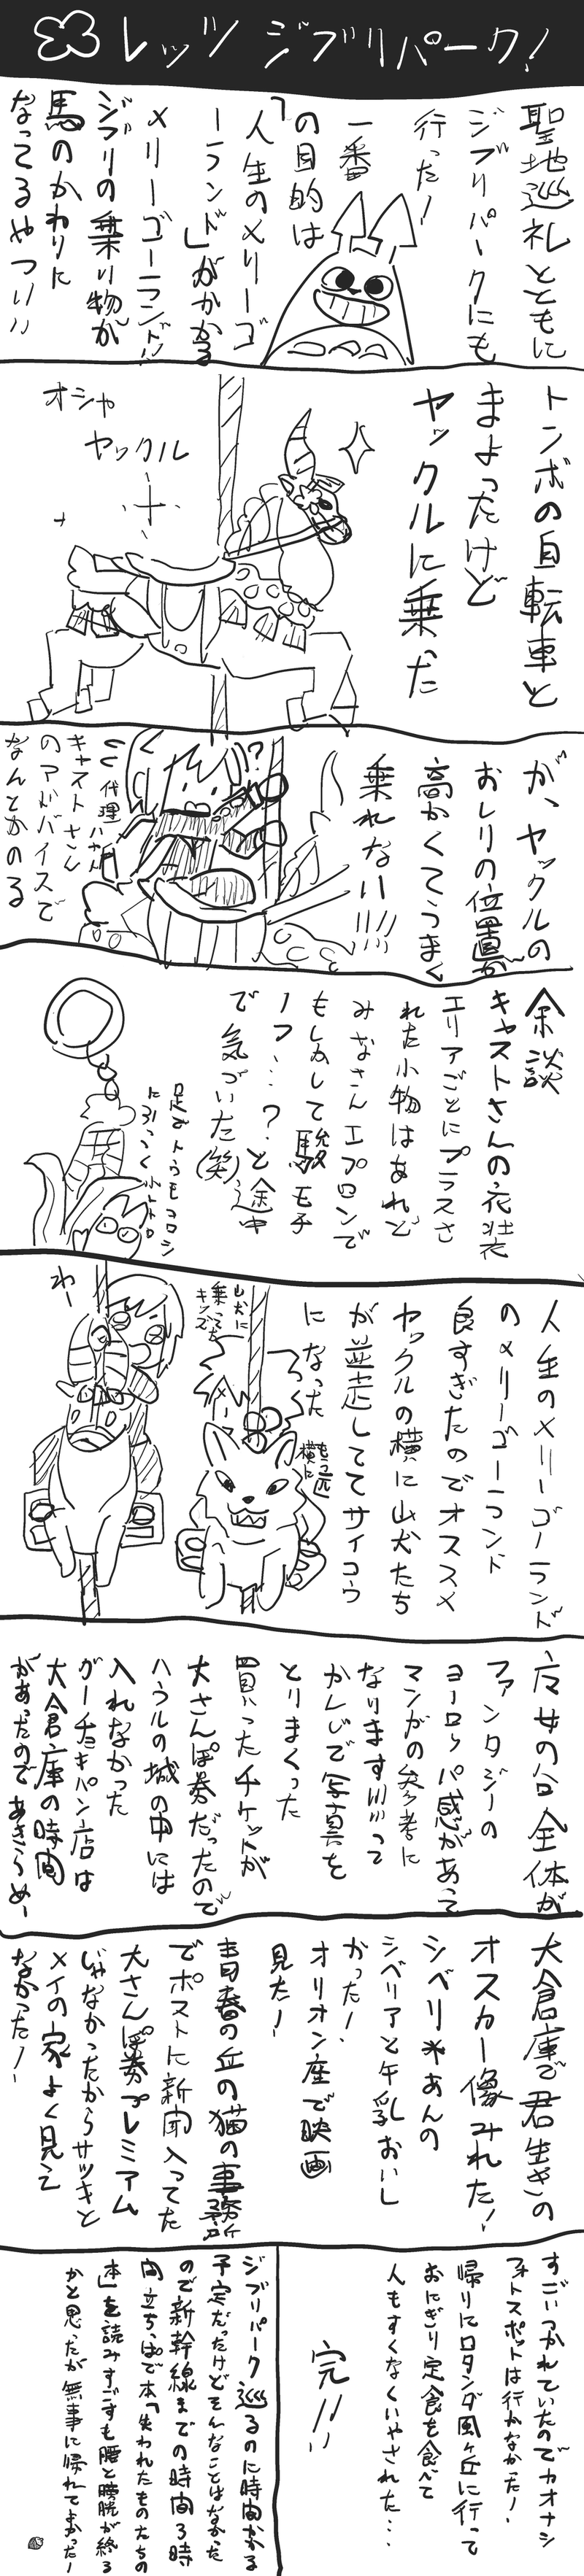 レッツ ジブリパーク!
聖地巡礼とともに
ジブリパークにも
行った!
一番
の目的は
「人生のメリーゴ
ーランド」がかかる
メリーゴーランド!!
ジブリの乗り物が
馬のかわりに
なってるやつ!!
トンボの自転車と
まよったけど
ヤックルに乗った
オシャ
ヤックル
が、ヤックルの
おしりの位置が
高かくてうまく
乗れない!!!!
?
代理ハヤオ
キャストさん
のアドバイスで
なんとかのる
余談
キャストさんの衣装
エリアごとにプラスさ
れた小物はあれど
みなさんエプロンで
もしかして駿モチ
ーフ…?と途中
で気づいた(笑)
足でトウモロコシ
に引っつく小トトロ
人生のメリーゴーランド
のメリーゴーランド
良すぎたのでオススメ
ヤックルの横に山犬たち
が並走しててサイコウ
になった
横に
山犬に
乗ってた
キッズ
わー
魔女の谷全体が
ファンタジーの
ヨーロッパ感があって
マンガの参考に
なります!!!!って
かんじで写真を
とりまくった
買ったチケットが
大さんぽ券だったので
ハウルの城の中には
入れなかった
グーチョキパン店は
大倉庫の時間
があったのであきらめー
大倉庫で君生きの
オスカー像みれた!
シベリ*あんの
シベリアと牛乳おいし
かった!
オリオン座で映画
見た!
青春の丘の猫の事務所
でポストに新聞入ってた
大さんぽ券プレミアム
じゃなかったからサツキと
メイの家よく見え
なかった!
すごいつかれていたのでカオナシ
フォトスポットは行かなかった!
帰りにロタンダ風ヶ丘に行って
おにぎり定食を食べて
人もすくなくいやされた…
完!!
ジブリパーク巡るのに時間かかる
予定だったけどそんなことはなかった
ので新幹線までの時間3時
間立ちっぱで本「失われたものたちの
本」を読みすごすも腰と膀胱が終る
かと思ったが無事に帰れてよかった!